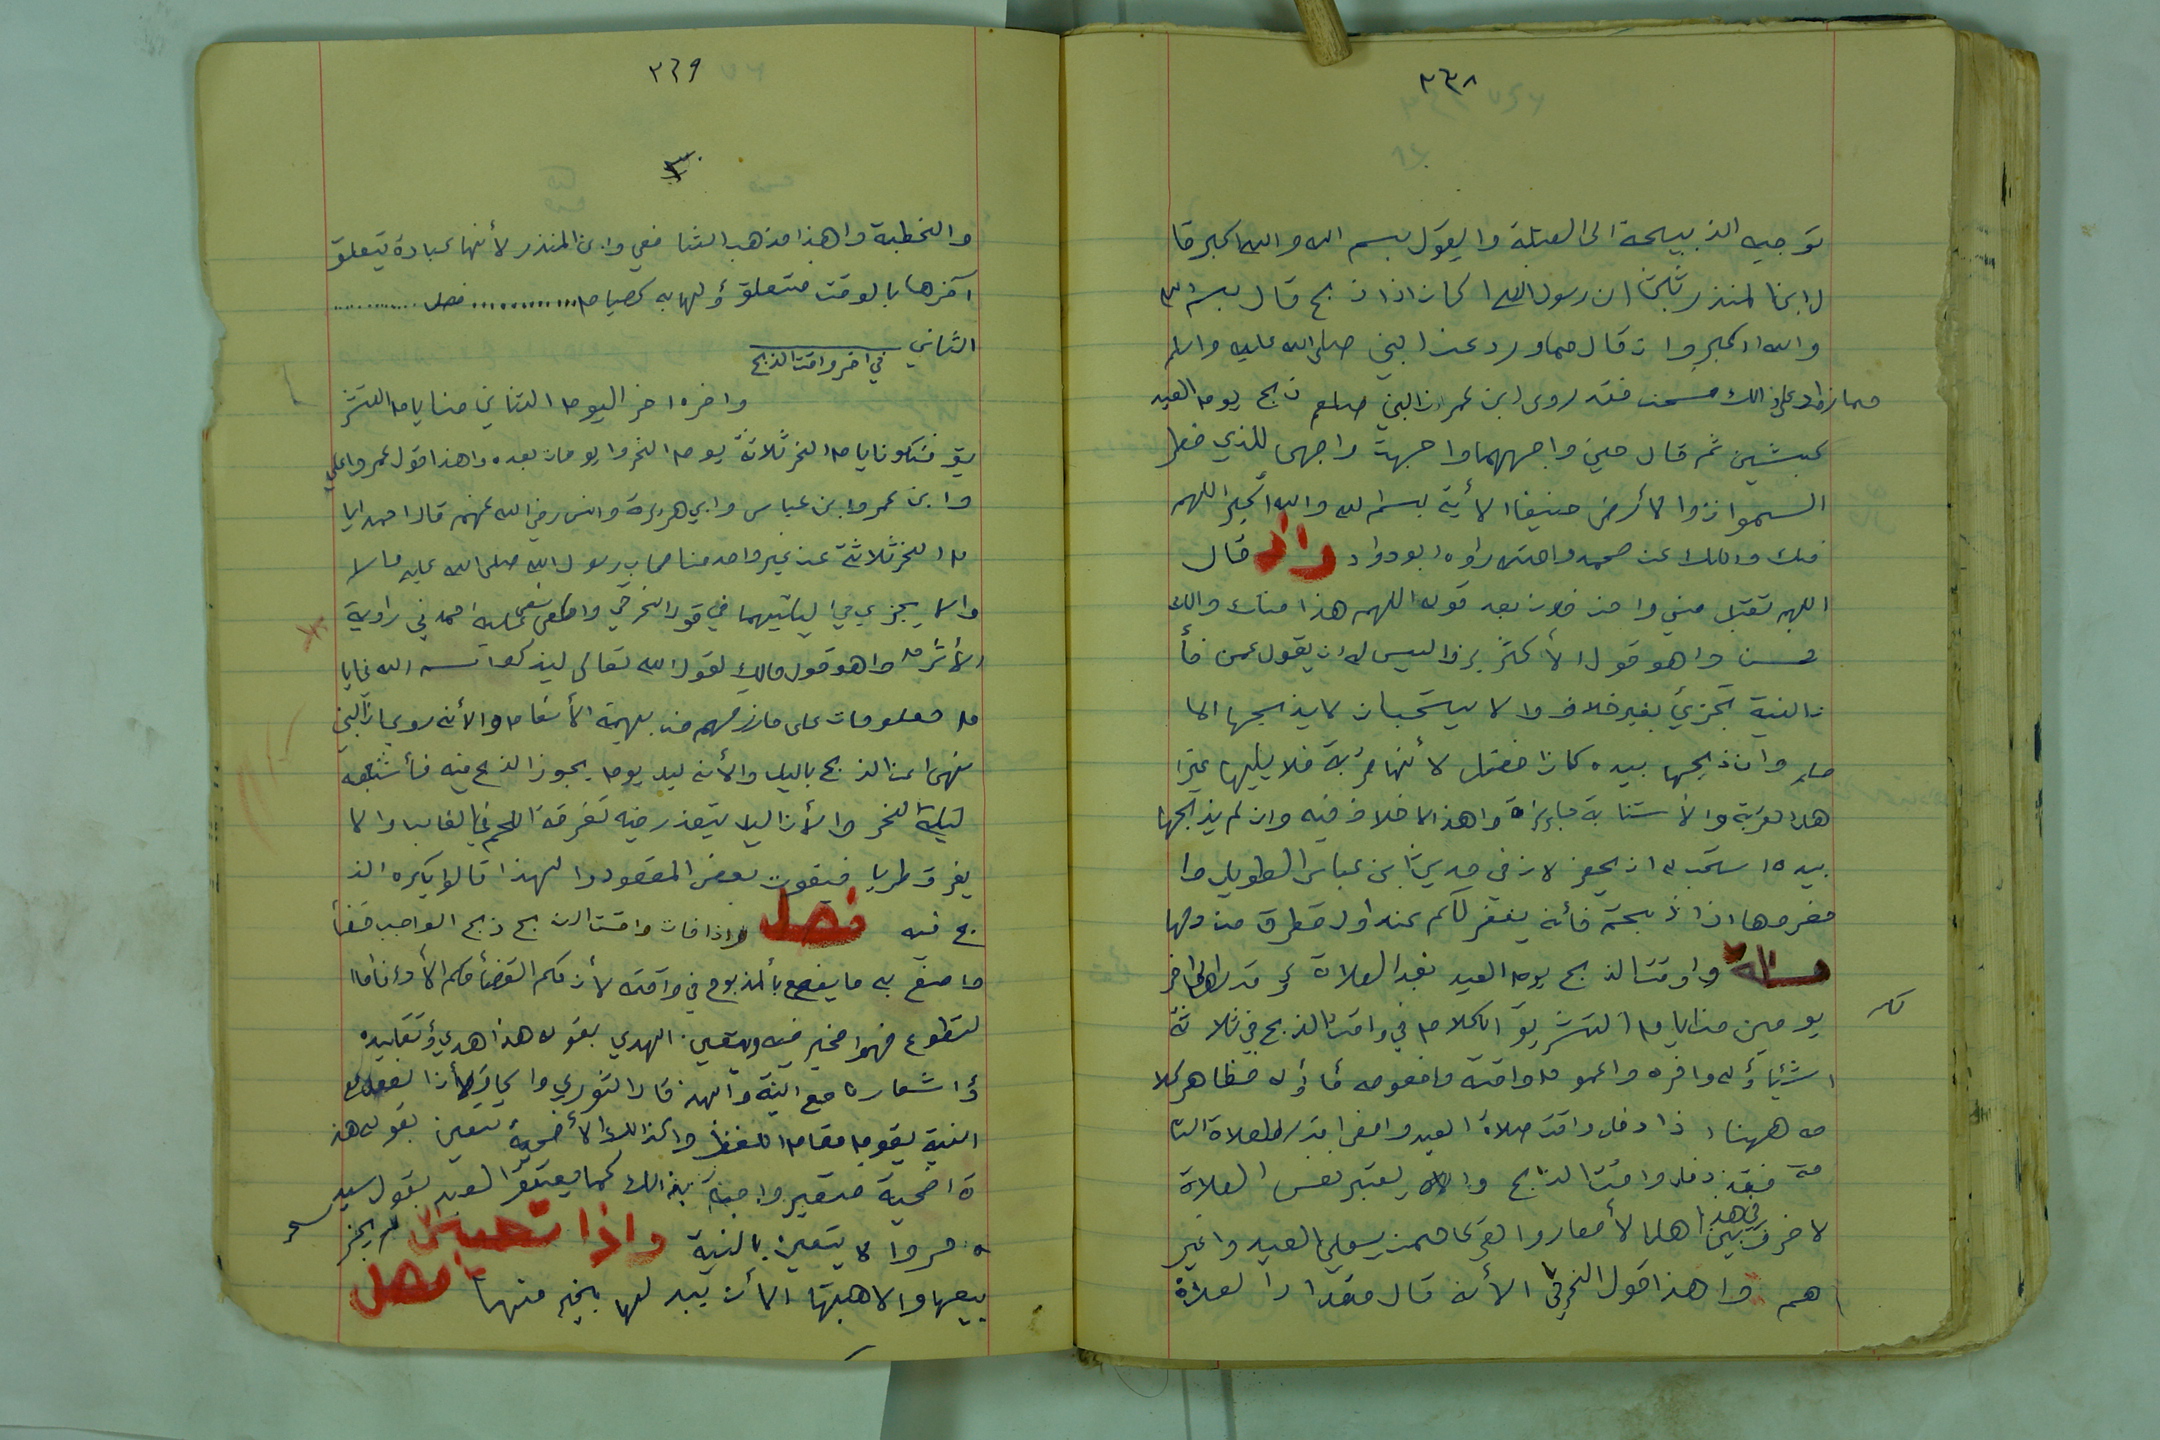 ٣٣٨
توجيه الذبيحة الى القبلة وا يقول بسم الله والله اكبر قا
ل ابن المنذر ثبت ان رسول الله ا كان اذا ذبح قال بسم الله
والله اكبر وان قال مماورد عن النبي صلى الله عليه واسلم
مما زاد على ذالك فحسن فقد روى ابن عمر ان النبي صلعم ذبح يوم العيد
كبشين ثم قال حين واجههما واجهت واجهى للذي فطر
السمواتزوا لأرض حنيفا الأية بسم الله والله اكبر اللهم
منك والك عن محمد وامته راوه ابودواد واذ قال
اللهم تقبل مني وا من فلان بعد قوله اللهم هذا منك والك
فحسن وا هو قول الأكثر ين وا ليس له ان يقول عمن فأ
ن النية تجزئ بغير خلاف والا يستحب ان لا يذبحها الا
مسلم وان ذبحها بيده كان افضل لأنها قربة فلا يليها غير ا
هل القربة والأ ستنابة جايزة وا هذا لا خلاف فيه وان لم يذبحها
بيده استحب له ان يحضر لان في حديث ابن عباس الطويل وا
حضروها اذا ذبحتم فأنه يغفر لكم عند اول قطرة من دمها
مسئلة وا وقت الذبح يوم العيد بعد الصلاة ؤ قدرها الى اخر
يومين من ايام التشريق الكلام في واقت الذبح في ثلاثة
اشيأ ؤله وا خره وا عموم واقته واخصوصه فأ ؤله فظاهر كلا
مه ههنا اذا دخل واقت صلاة العيد وامضا قدر الصلاة التا
مة فقد دخل وا قت الذبح والا يعتبر نفس الصلاة
لا فرق في هذا بين اهل الأمصار وا القرى ممن يصلي العيد وا غير
هم وا هذا قول الخرقي الأنه قال مقدار الصلاة
٣٣٩
٣
والخطبة وا هذا مذهب الشافعي وابن المنذر لأنها عبادة يتعلق
آخرها بالوقت فتعلق ؤلها به كصيام ............ فصل ............
الثاني في اخر واقت الذبح
واخره اخر اليوم الثاني من ايام التشر
يق فتكون ايام النحر ثلاثة يوم النحر وا يومان بعده وا هذا قول عمر وا علي
وا بن عمر وا بن عباس وابي هريرة وانس رضي الله عنهم قال احمد ايا
م النحر ثلاثة عن غير واحد من اصحاب رسول الله صلى الله عليه
والا يجزي في ليلتيهما في قول الخرقي وا نص عليه احمد في راوية
الأثرم وا هو قول مالك لقول الله تعالى ليذكروا اسم الله في ايا
م معلومات على مارزقهم من بهيمة الأنعام والأنه روي ان النبي
نهى عن الذبح بالليل والأنه ليل يوم يجوز الذبح فيه فأشبه
ليلة النحر وا لأن الليل يتعذر فيه تفرقة اللحم في الغالب والا
يفرق طريا فيفوت بعض المقصود وا لهذا قالوا يكره الذ
بح فيه فصل واذا فات واقت الذبح ذبح الواجب قضأ
وا صنع به ما يصنع بالمذبوح في واقته لأن حكم القضأ حكم الأدا
لتطوع فهوا مخير فيه ويتعين الهدي بقوله هذا هدي ؤ تقليده
ؤا شعاره مع النية وابهذ قال الثوري وا سحاق لأن الفعل مع
النية يقوم مقام اللفظ واكذالك الأضحية تتعين بقوله هذ
ه اضحية فتصير واجبة بذالك كما يعتق العبد بقول سيد
ه حر والا يتعين بالنية واذا تعينت لم يجز
بيعها والا هبتها الا أن يبدلها بخير منها فصل